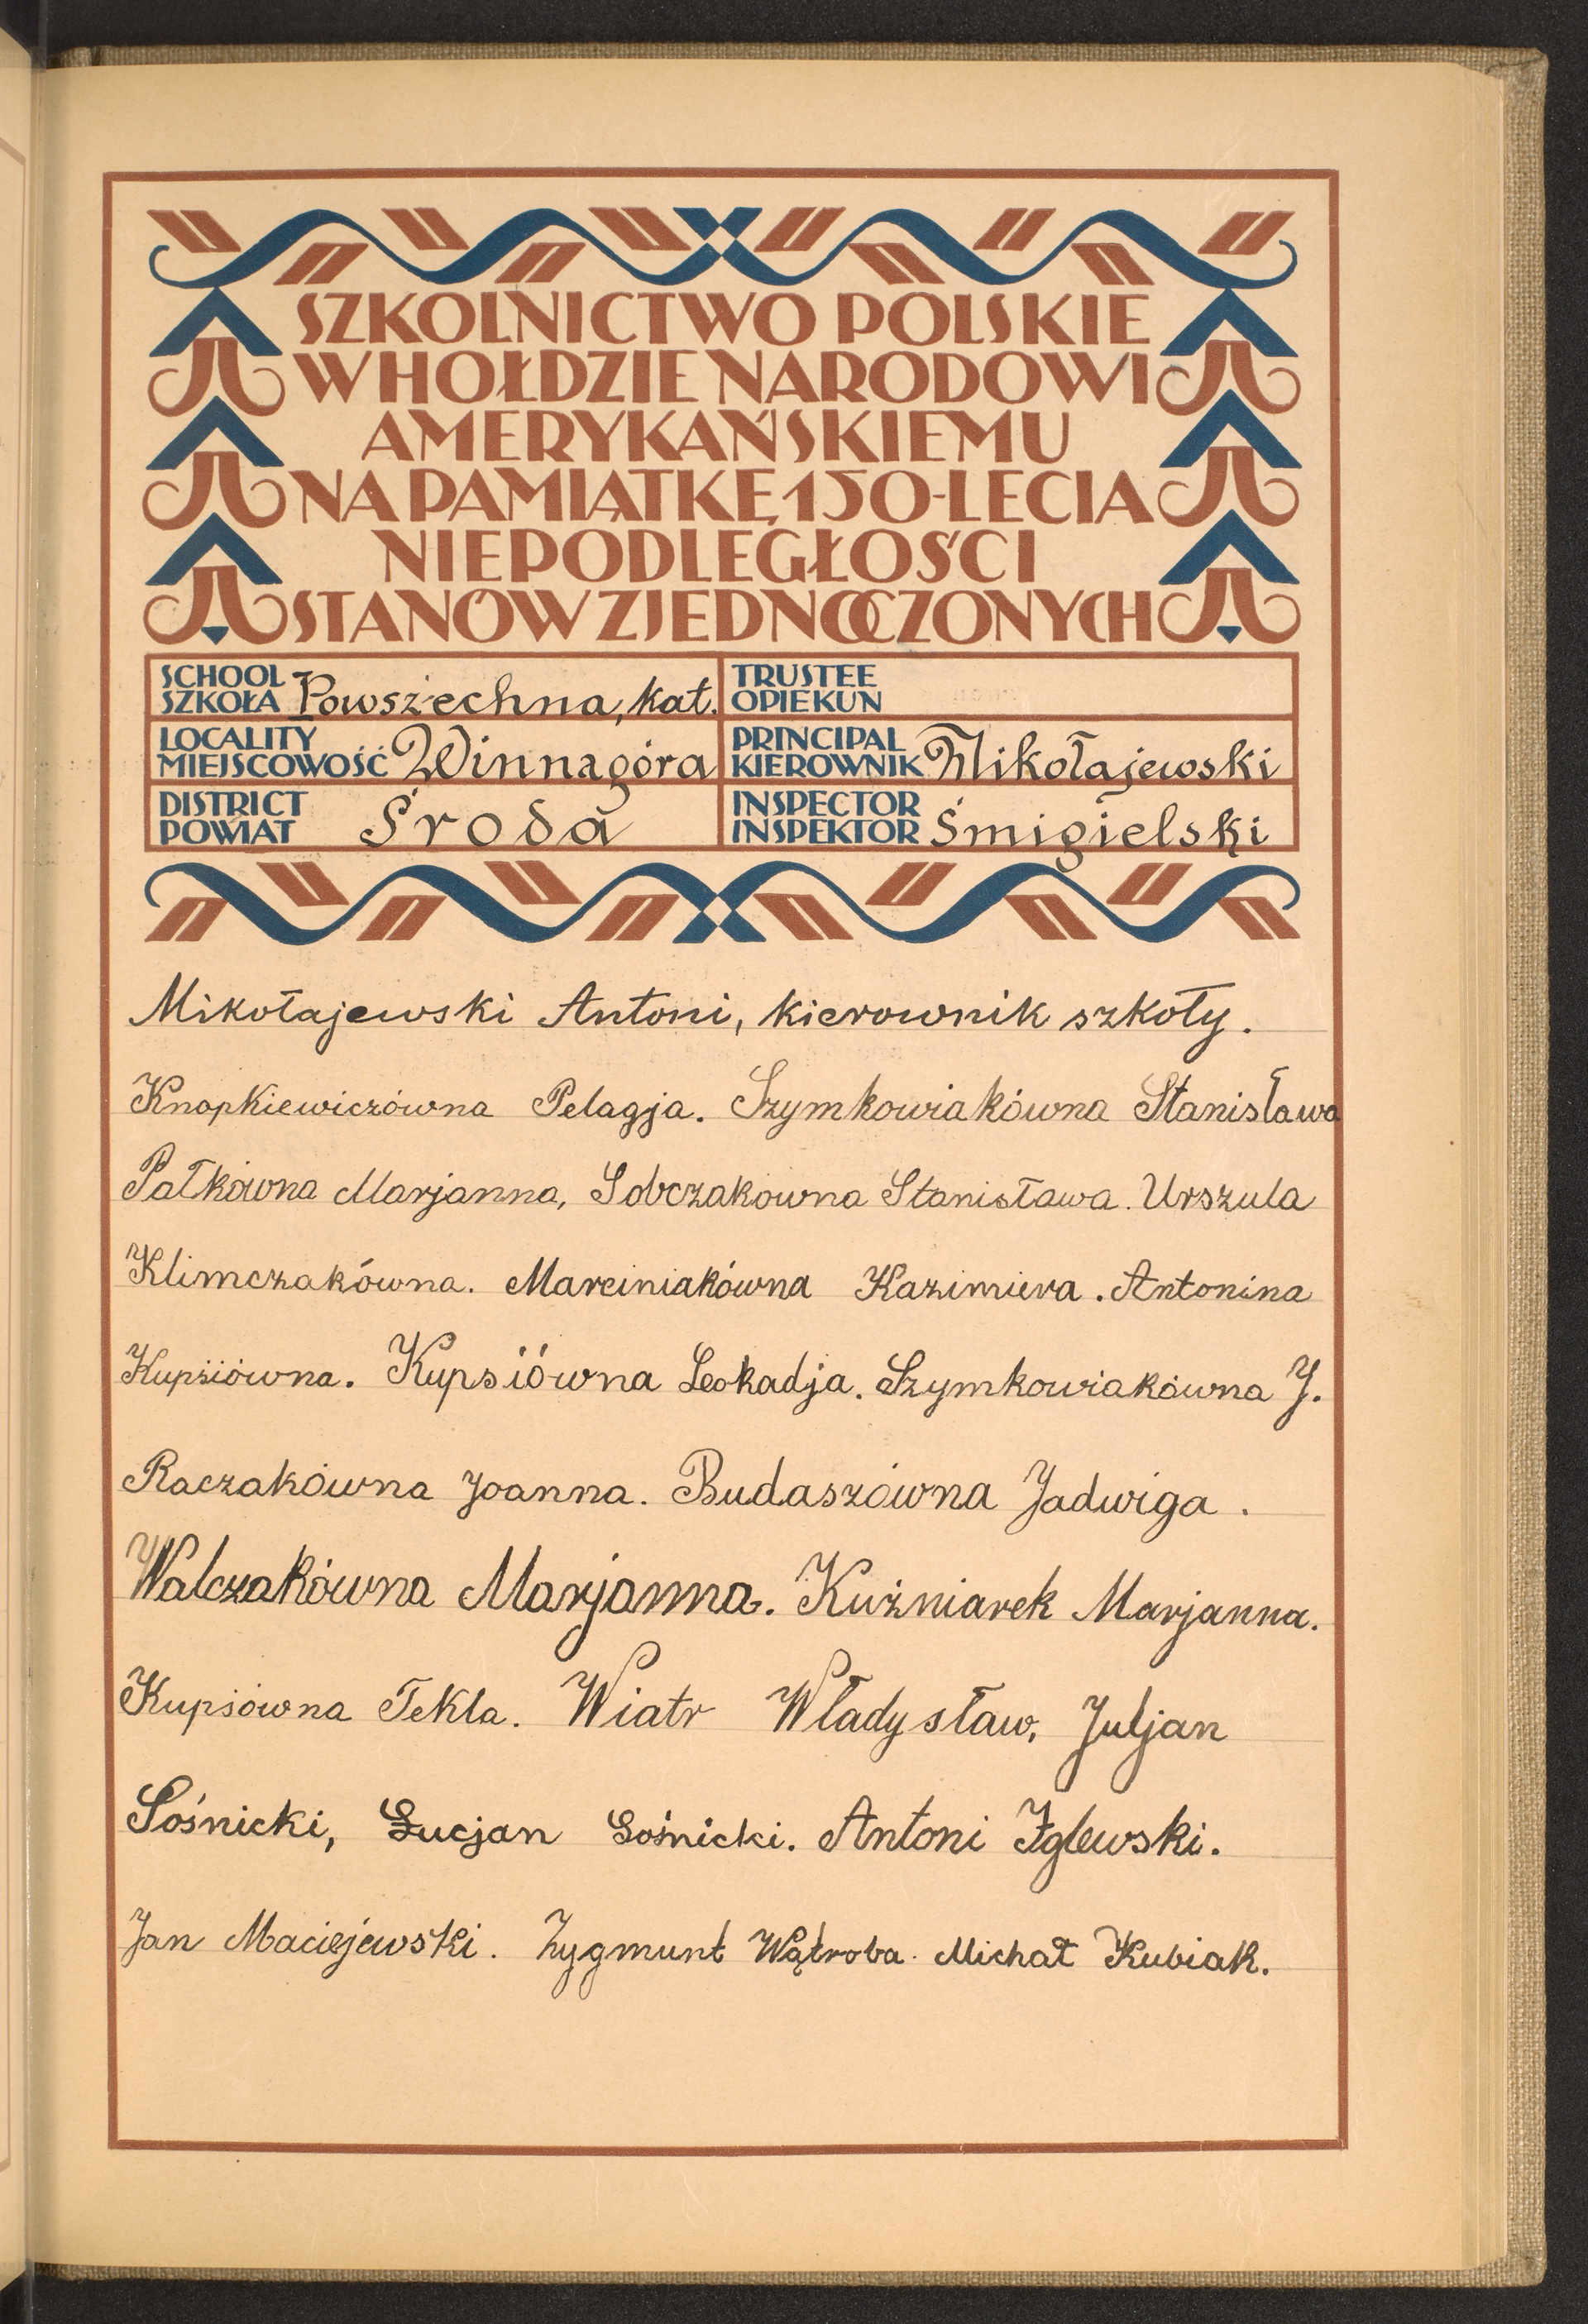 SZKOLNICTWO POLSKIE
W HOŁDZIE NARODOWI
AMERYKAŃSKIEMU
NA PAMIĄTKĘ 150-LECIA
NIEPODLEGŁOŚCI
STANÓW ZJEDNOCZONYCH
SCHOOL
SZKOŁA Powszechna, kat.
TRUSTEE
OPIEKUN
LOCALITY
MIEJSCOWOŚĆ Winnagóra
PRINCIPAL
KIEROWNIK Mikołajewski
DISTRICT
POWIAT Środa
INSPECTOR
INSPEKTOR Śmigielski
Mikołajewski Antoni, kierownik szkoły.
Knopkiewiczówna Pelagja. Szymkowiakówna Stanisława
Pałkówna Marjanna, Sobczakówna Stanisława. Urszula
Klimczakówna. Marciniakówna Kazimiera. Antonina
Kupsiówna. Kupsiówna Leokadja. Szymkowiakówna J.
Raczakówna Joanna. Budaszówna Jadwiga.
Walczakówna Marjanna. Kuźniarek Marjanna.
Kupsiówna Tekla. Wiatr Władysław, Juljan
Sośnicki, Lucjan Sośnicki. Antoni Iglewski.
Jan Maciejewski. Zygmunt Wątroba. Michał Kubiak.